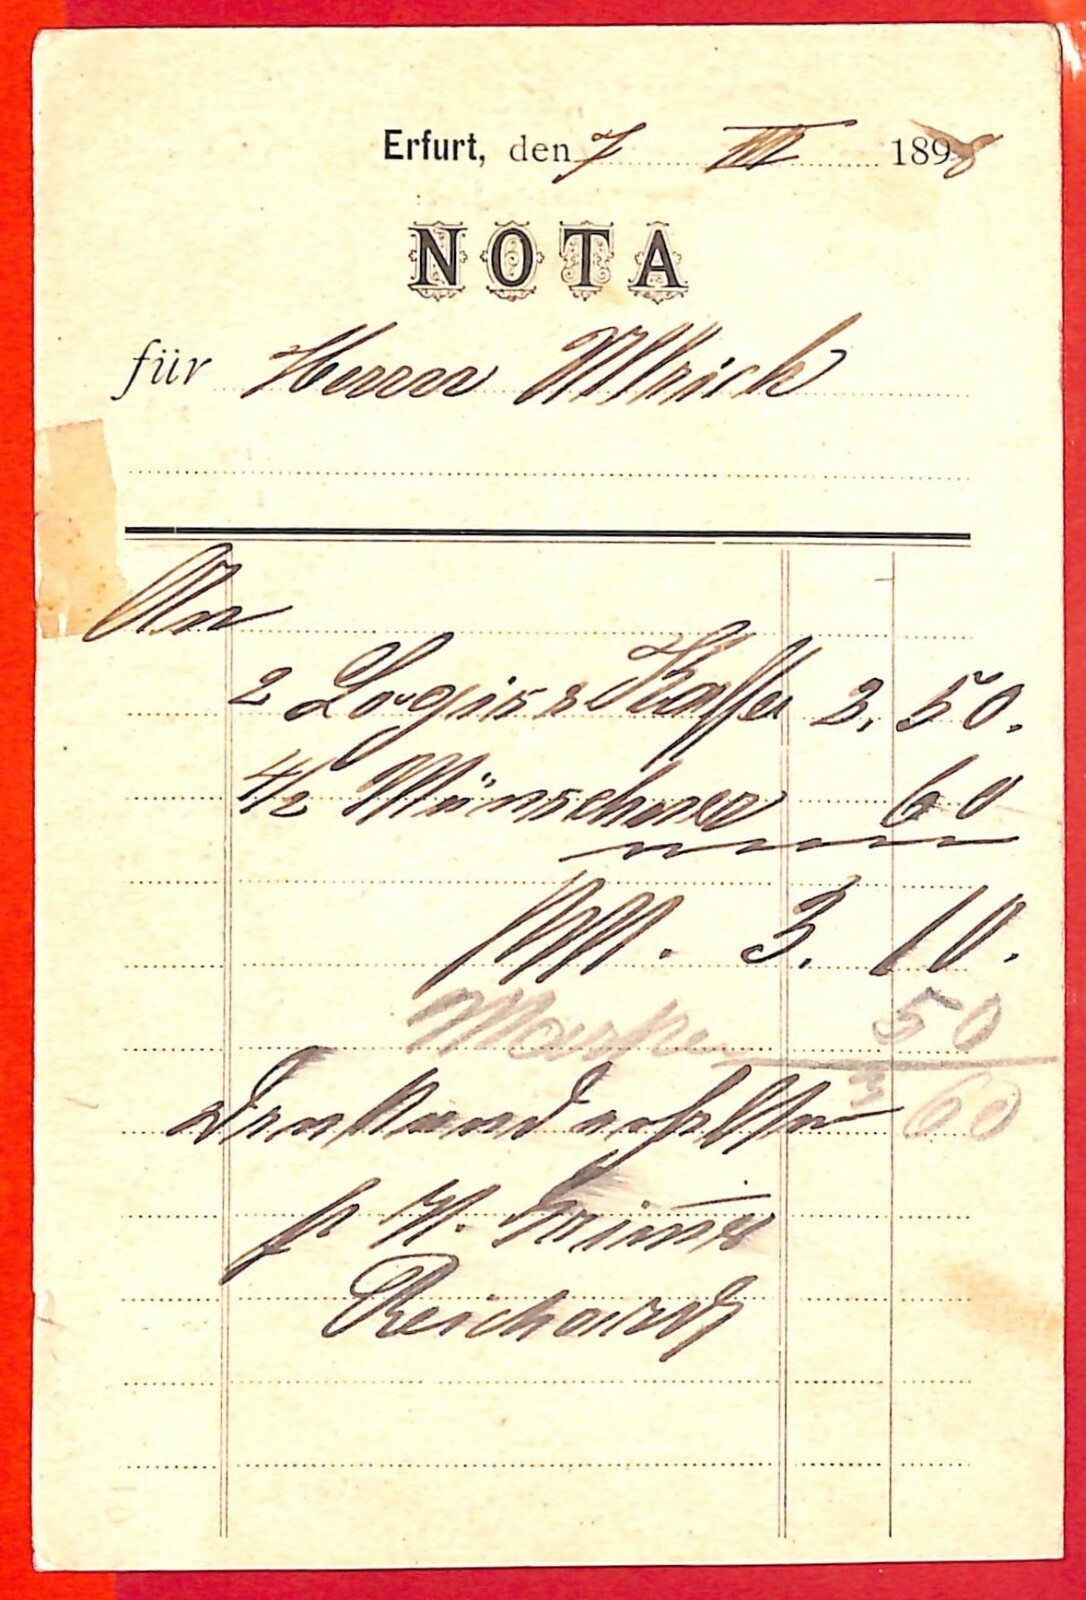 Erfurt, den 7 III 1898
NOTA
für Herrn Ullrich
An
2 Logis & Kaffe 2, 50.
4/2 Münchner 60
M. 3. 10.
Marke 50
3 60
Dankend erhalten
p. H.
Reichardt